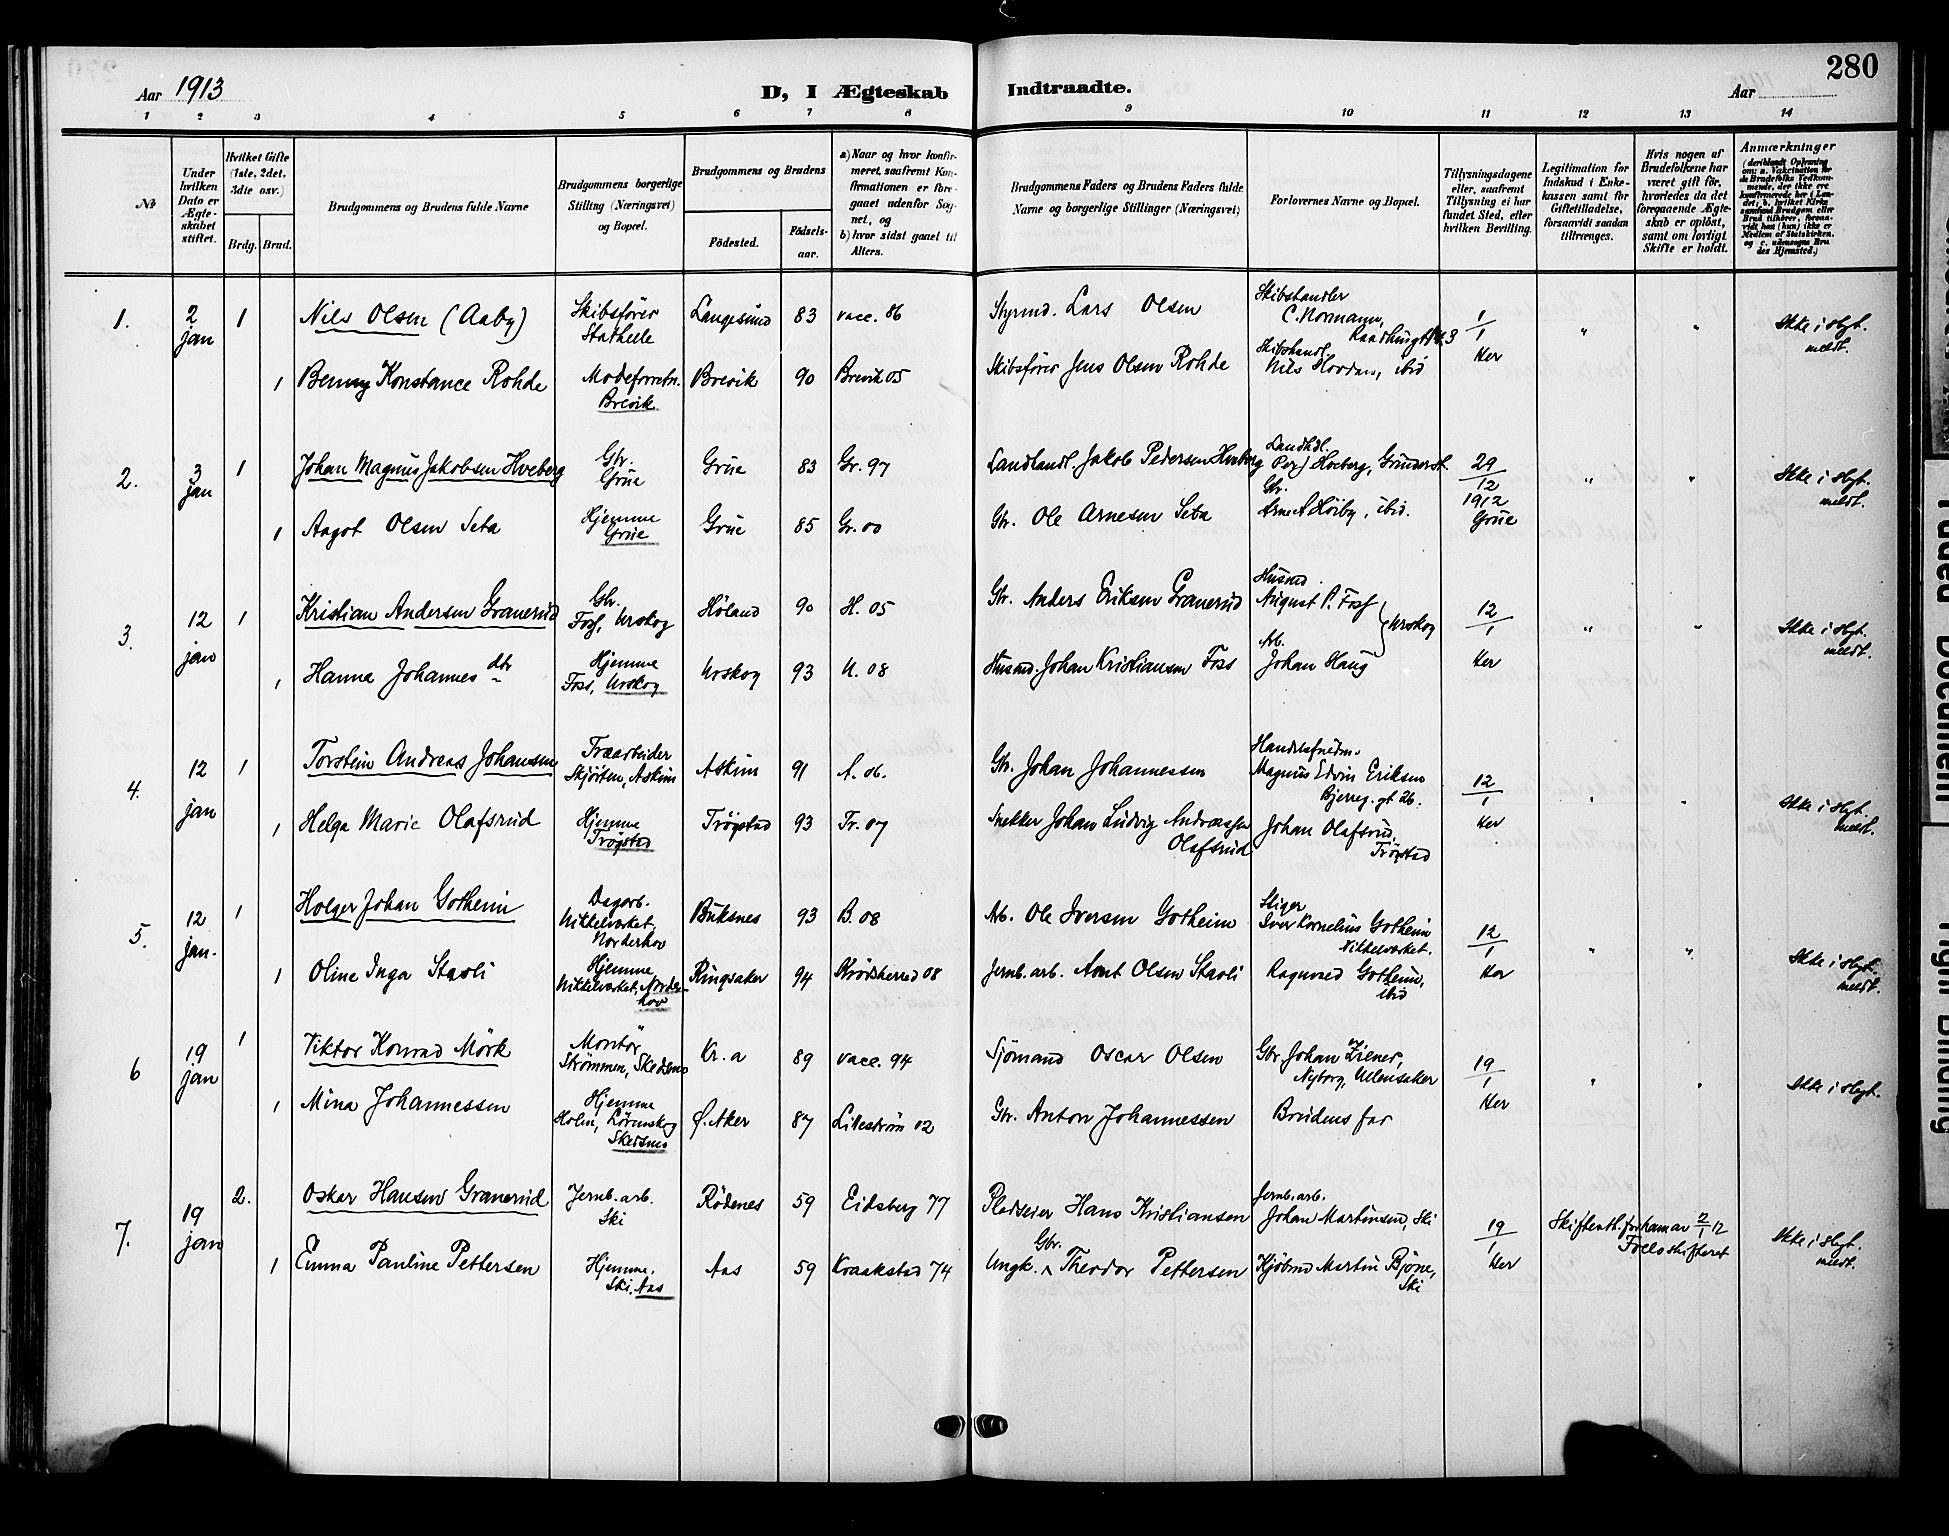 Aar 1913
D, I Ægteskab Indtraadte.
280
Aar
1 2 3 4 5 6 7 8 9 10 11 12 13 14
№
Under hvilken Dato er Ægteskabet stiftet.
Hvilket Gifte (1ste, 2det, 3die osv.)
Brdg. Brud.
Brudgommens og Brudens fulde Navne
Brudgommens borgerlige Stilling (Næringsvei) og Bopæl.
Brudgommens og Brudens
Födested. Födsels-aar.
a) Naar og hvor konfirmeret, saafremt Konfirmationen er foregaaet udenfor Sognet, og
b) hvor sidst gaaet til Alters.
Brudgommens Faders og Brudens Faders fulde Navne og borgerlige Stillinger (Næringsvei)
Forlovernes Navne og Bopæl.
Tillysningsdagene eller, saafremt Tillysning ei har fundet Sted, efter hvilken Bevilling.
Legitimation for Indskud i Enkekassen samt for Giftetilladelse, forsaavidt saadan tiltrænges.
Hvis nogen af Brudefolkene har været gift för, hvorledes da det foregaaende Ægteskab er oplöst, samt om lovligt Skifte er holdt.
Anmærkninger
1. 2 jan 1 Nils Olsen (Aaby) Skibsfører Stathelle Langesund 83 vacc. 86 Styrmd. Lars Olsen Skibshandler C. Normann, 1/1 Her " " Ikke i slgt. meldt.
1 Benny Konstance Rohde Modeforretn. Brevik Brevik 90 Brevik 05 Skibsfører Jens Olsen Rohde Skibshandl. Nils Hordan, ibid
2. 3 jan 1 Johan Magnus Jakobsen Hveberg Gbr. Grue Grue 83 Gr. 97 Landhandl. Jakob Pedersen Hveberg Landhdl. Per J Hveberg, 29/12 1912 Grue " " Ikke i slgt. meldt.
1 Aagot Olsen Seta Hjemme Grue Grue 85 Gr. 00 Gbr. Ole Arnesen Seta Gbr. Arne A Høiby, ibid.
3. 12 jan 1 Kristian Andersen Granerud Gbr. Foss, Urskog Høland 90 H. 05 Gbr. Anders Eriksen Granerud Husmd. August P. Foss Urskog 12/1 Her " " Ikke i slgt. meldt.
1 Hanna Johannesdtr Hjemme Foss, Urskog Urskog 93 U. 08 Husmd. Johan Kristiansen Foss Arb. Johan Haug
4. 12 jan 1 Torstein Andreas Johansen Træarbeider Skjørten, Askim Askim 91 A. 06. Gbr. Johan Johannessen Handelsfuldm. Magnus Edvin Eriksen Bjerreg. gt 26. 12/1 Her " " Ikke i slgt. meldt.
1 Helga Marie Olafsrud Hjemme Trøgstad Trøgstad 93 Tr. 07 Snekker Johan Ludvig Andreassen Olafsrud Johan Olafsrud, Trøgstad
5. 12 jan. 1 Holger Johan Gotheim Dagarb. Nikkelværket, Norderhov Buksnes 93 B. 08 Arb. Ole Iversen Gotheim Stiger Iver Kornelius Gotheim Nikkelværket. 12/1 Her " " Ikke i slgt. meldt.
1 Oline Inga Stavli Hjemme Nikkelværket, Norderhov Ringsaker 94 Krødsherred 08 Jernb. arb. Amt Olsen Stavli Ragnvad Gotheim, ibid
6 19 jan 1 Viktor Konrad Mörk Montør Strømmen, Skedsmo Kr.a 89 vacc. 94 Sjömand Oscar Olsen Gbr. Johan Ziener, Nyborg, Ullensaker 19/1 Her " " Ikke i slgt.
1 Mina Johannessen Hjemme Holm, Lørenskog Skedsmo Ø. Aker 87 Lillestrøm 02 Gbr. Anton Johannessen Brudens far
7. 19 jan 2. Oskar Hansen Granerud Jernb. arb. Ski Rødenes 59 Eidsberg 77 Pladseier Hans Kristiansen Jernb. arb. Johan Martinsen, Ski 19/1 Her Skifteatt. fra hamar 2/1 12 Fællesskifteret Ikke i slgt. meldt.
1 Emma Pauline Pettersen Hjemme, Ski, Aas Aas 59 Kraakstad 74 Ungk. Gbr. Theodor Pettersen Kjøbmd Martin Bjøne, Ski